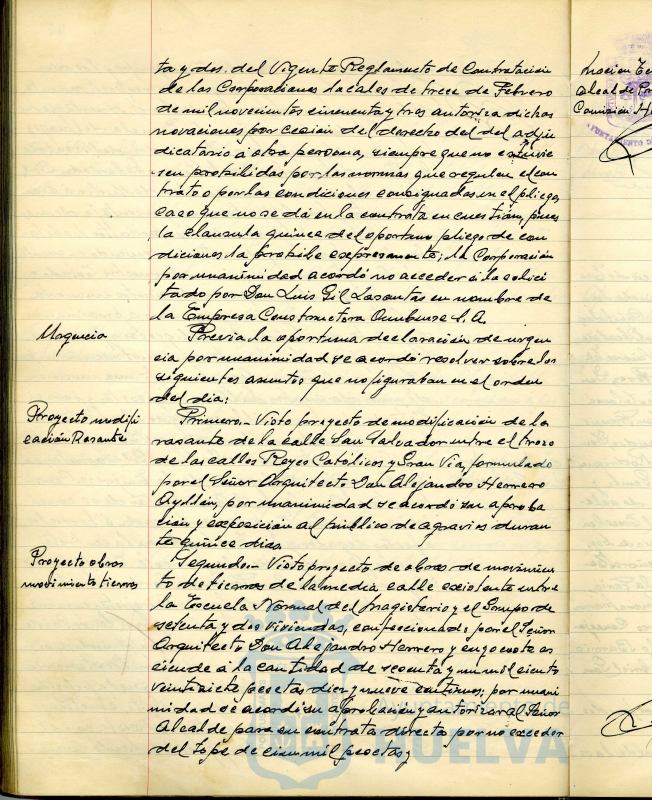 ta y dos. del Vigente Reglamento de Contratación
de las Corporaciones locales de trece de Febrero
de mil novecientos cincuenta y tres autoriza dichas
novaciones por cesión del derecho del del adju
dicatario á otra persona, siempre que no estuvie
sen prohibidas por las normas que regulen el con
trato o por las condiciones consignadas en el pliego,
caso que no se dá en la contrata en cuestión, pues
la clausula quince del oportuno pliego de con
diciones la prohibe expresamente; la Corporación
por unanimidad acordó no acceder á lo solici
tado por Don Luis Gil Lasantas en nombre de
la Empresa Constructora Onubense S.A.
Urgencia
Previa la oportuna declaración de urgen
cia por unanimidad se acordó resolver sobre los
siguientes asuntos que no figuraban en el orden
del dia:
Proyecto modifi
cación Rasante
Primero.- Visto proyecto de modificación de la
rasante de la calle San Salvador entre el trozo
de las calles Reyes Católicos y Gran Via, formulado
por el Señor Arquitecto Don Alejandro Herrero
Ayllón, por unanimidad se acordó su aproba
ción y exposición al público de agravios duran
te quince dias.
Proyecto obras
movimiento tierras
Segundo.- Visto proyecto de obras de movimien
to de tierras de la media calle existente entre
la Escuela Normal del Magisterio y el Grupo de
setenta y dos viviendas, confeccionado por el Señor
Arquitecto Don Alejandro Herrero y cuyo coste as
ciende á la cantidad de sesenta y un mil ciento
veintisiete pesetas diez y nueve centimos; por unani
midad se acordó su aprobación y autorizar al Señor
Alcalde para su contrata directa por no exceder
del tope de cien mil pesetas;
HUELVA